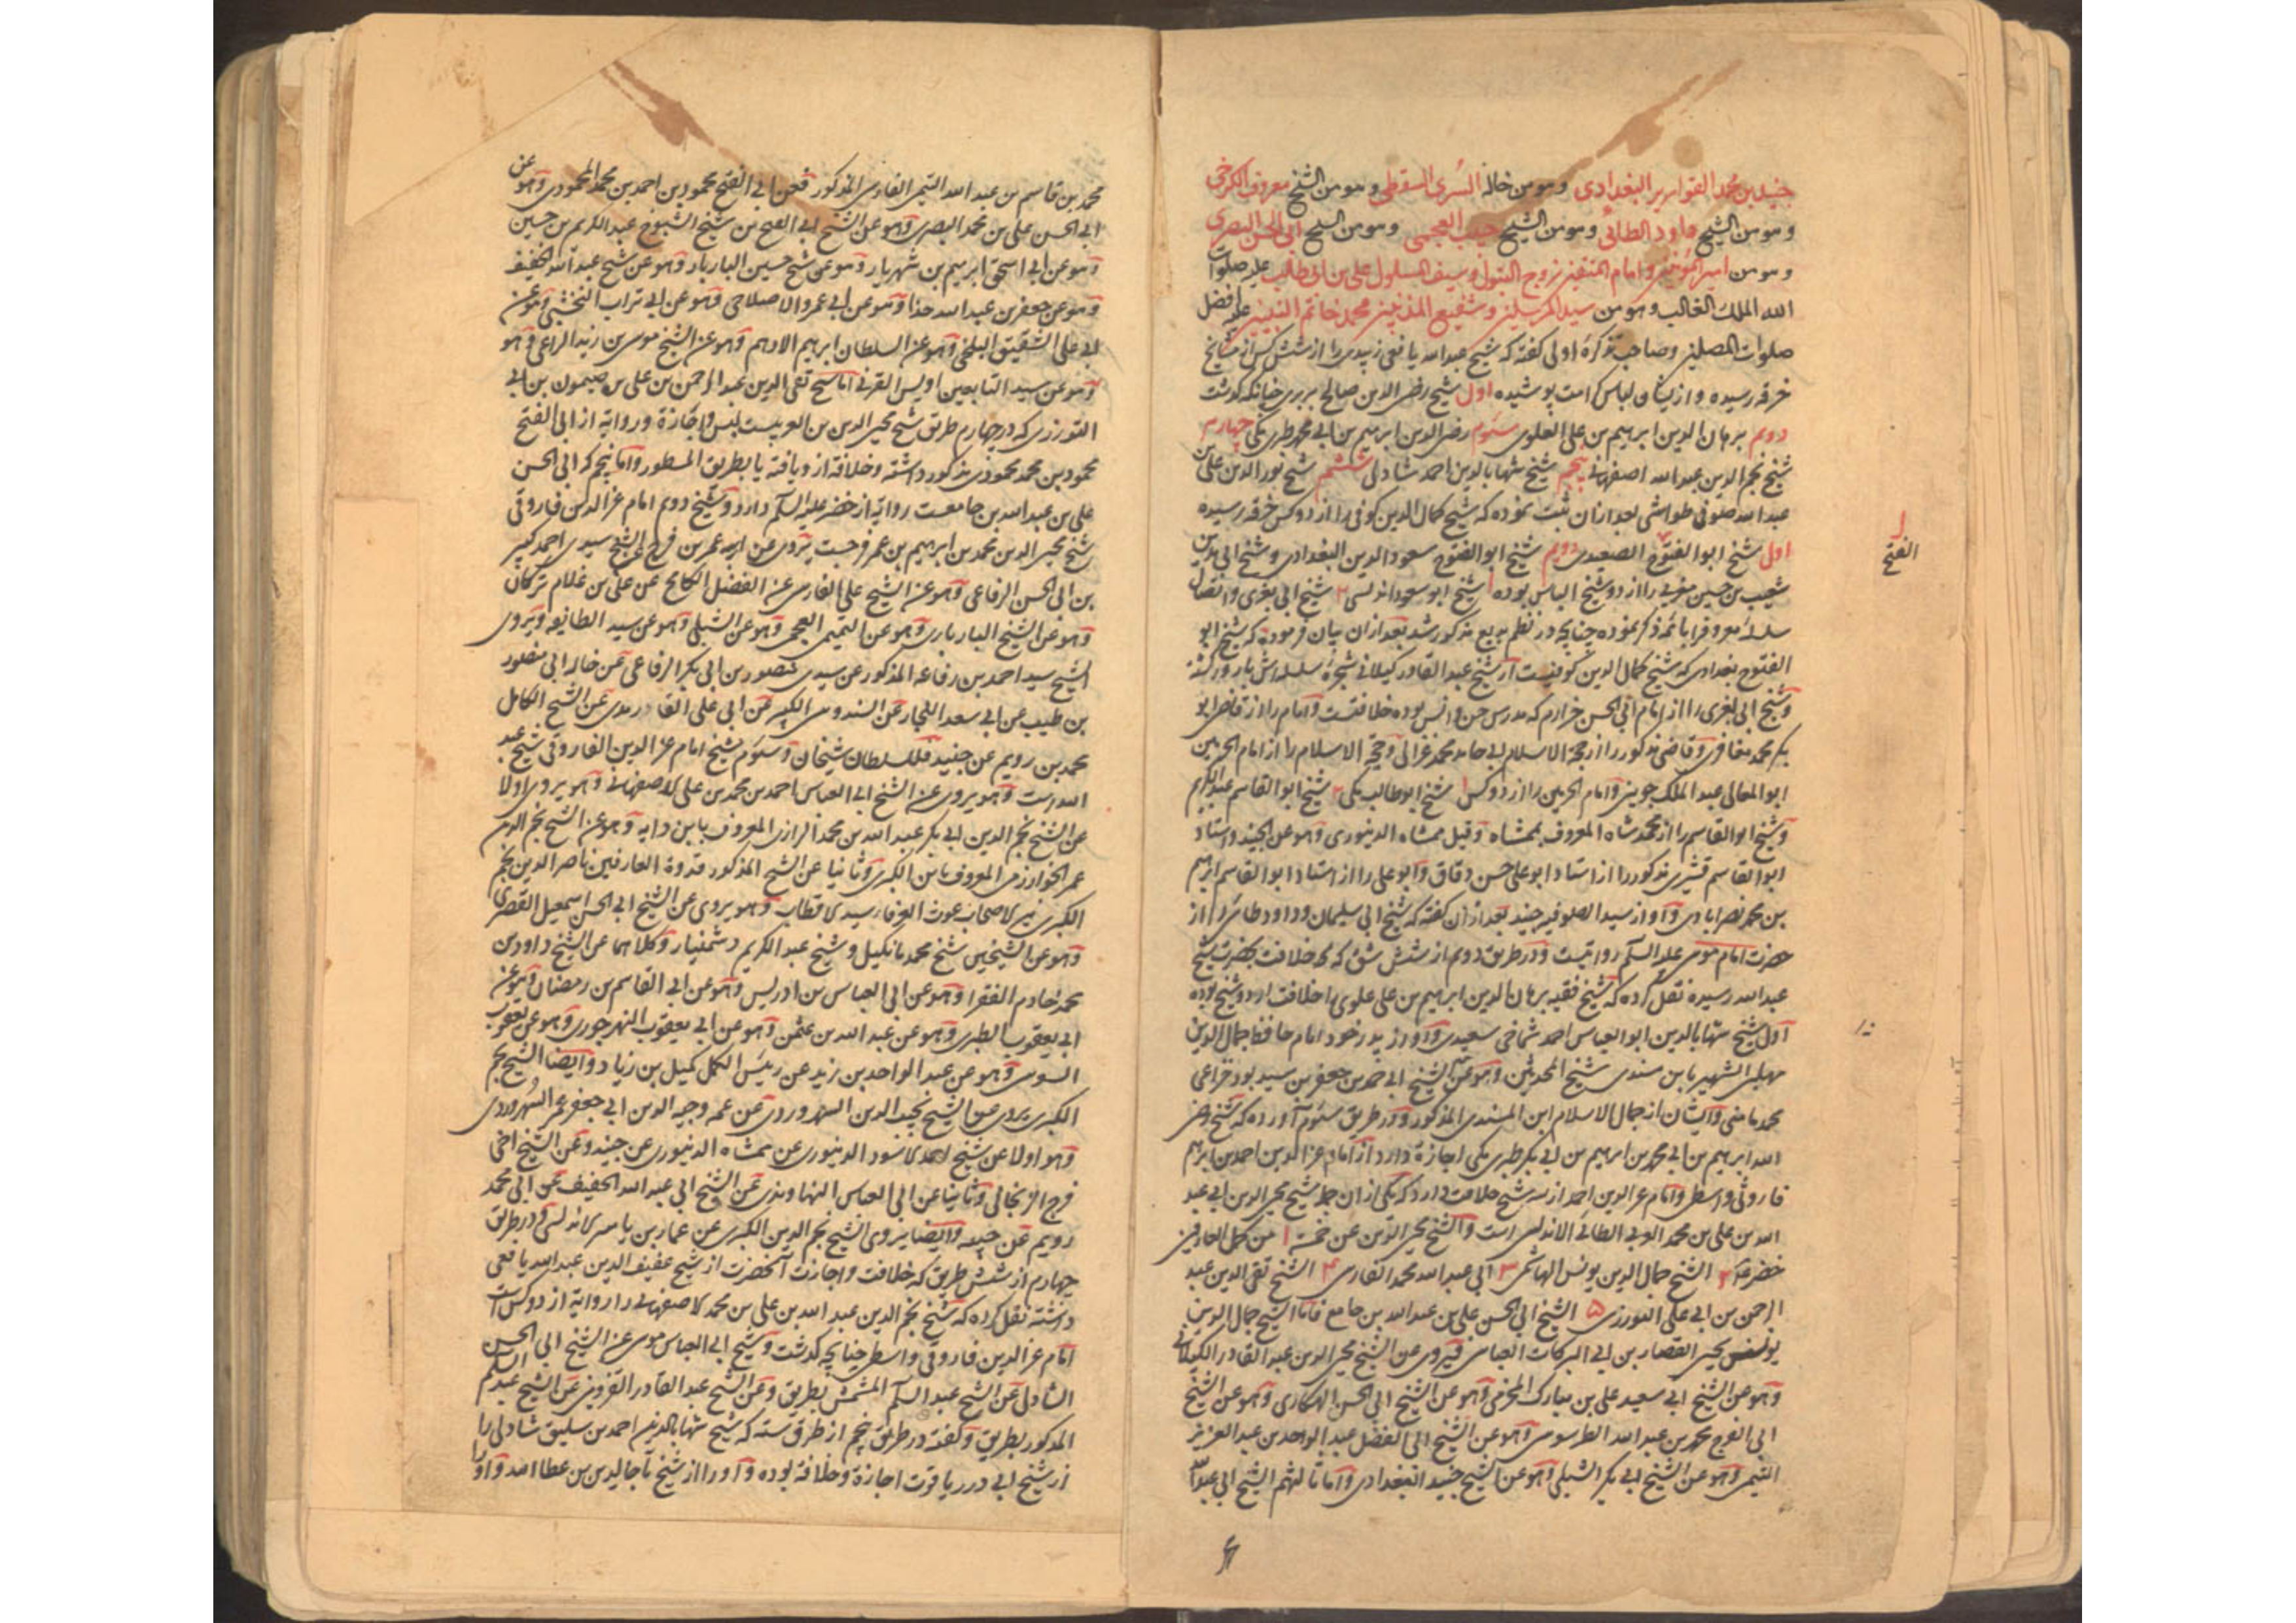 جنید بن محمد القواریر البغدادی وهو من خاله السری السقطی وهو من الشیخ معروف الکرخی
وهو من الشیخ داود الطائی وهو من الشیخ حبیب العجمی وهو من الشیخ ابی الحسن البصری
وهو من امیر المؤمنین وامام المتقین زوج البتول وسیف المسلول علی بن ابی طالب علیه صلوات
الله الملک الغالب وهو من سید المرسلین وشفیع المذنبین محمد خاتم النبیین علیه افضل
صلوات المصلین وصاحب تذکرهٔ اولی کفته که شیخ عبدالله یافعی زبیدی را از شش کس از مشایخ
خرقه رسیده و ازیشان لباس کرامت پوشیده اول شیخ رضی الدین صالح بربری چنانکه کذشت
دویم برهان الدین ابرهیم بن علی العلوی سوم رضی الدین ابرهیم بن ابی محمد طبری مکی چهارم
شیخ نجم الدین عبدالله اصفهانی پنجم شیخ شهاب الدین احمد شادلی ششم شیخ نور الدین علی بن
عبدالله صوفی طواشی بعد ازان ثبت نموده که شیخ کمال الدین کوفی را از دو کس خرقه رسیده
اول شیخ ابو الفتوح الصعیدی دویم شیخ ابو الفتوح سعود الدین البغدادی و شیخ ابی مدین
الفتح
شعیب بن حسین مغربی را از دو شیخ الباس بوده ۱ شیخ ابو سعود اندلسی ۲ شیخ ابی یغزی واتصال
سلسله معروفرا بائمه ذکر نموده چنانچه در نظم بدیع مذکور شد بعد ازان بیان فرموده که شیخ ابو
الفتوح بغدادی که شیخ کمال الدین کوفیست از شیخ عبد القادر کیلانی شجرهٔ سلسله اش بارور کشته
وشیخ ابی یغزی را از امام ابی الحسن حرازم که مدرس جن وانس بوده خلافتست وامام را از قاضی ابو
بکر محمد مغافری وقاضی مذکور را از حجة الاسلام ابی حامد محمد غزالی وحجة الاسلام را از امام الحرمین
ابو المعالی عبد الملک جوینی وامام الحرمین را از دو کس ۱ شیخ ابو طالب مکی ۲ شیخ ابو القاسم عبد الکریم
وشیخ ابو القاسم را از محمد شاه المعروف بممشاه وقیل ممشاه الدنیوری وهو عن الجنید واستاد
ابو القاسم قشیری مذکور را از استاد ابو علی حسن دقاق وابو علی را از استاد ابو القاسم ابرهیم
بن محمد نصرابادی واو از سید الصوفیه جنید بعد از آن کفته که شیخ ابی سلیمان وداود طائی را از
حضرت امام موسی علیه السلم روایتست ودر طریق دویم از شش شق که خلافت بحضرت شیخ
عبدالله رسیده نقل کرده که شیخ فقیه برهان الدین ابرهیم بن علی علوی را خلافت از دو شیخ بوده
اول شیخ شهاب الدین ابو العباس احمد شماخی سعیدی واو از پدر خود امام حافظ جمال الدین
محمد مامنی وایشان از جمال الاسلام ابن المسندی المذکور ودر طریق سوم آورده که شیخ رضی
الله ابرهیم بن ابی محمد بن ابرهیم بن ابی بکر طبری مکی اجازة دارد از امام عز الدین احمد بن ابرهیم
فاروثی واسطی وامام عز الدین احمد از سه شیخ خلافت دارد که یکی از ان شیخ محیی الدین ابی عبد
الله بن علی بن محمد العربی الطائی الاندلسی است والشیخ محیی الدین عن خمسة ۱ من کمل العارفین
خضر ۲ الشیخ جمال الدین یونس الهاشمی ۳ ابی عبدالله محمد الفاسی ۴ الشیخ تقی الدین عبد
الرحمن بن ابی علی التوزری ۵ الشیخ ابی الحسن علی بن عبدالله بن جامع فاما الشیخ جمال الدین
یونس یحیی القصار بن ابی البرکات العباسی فیروی عن الشیخ محیی الدین عبد القادر الکیلانی
وهو عن الشیخ ابی سعید علی بن مبارک المخزمی وهو عن الشیخ ابی الحسن الهکاری وهو عن الشیخ
ابی الفرج محمد بن عبدالله الطرسوسی وهو عن الشیخ ابی الفضل عبد الواحد بن عبد العزیز
التمیمی وهو عن الشیخ ابی بکر الشبلی وهو عن الشیخ جنید البغدادی واما ثالثهم الشیخ ابی عبدالله
محمد بن قاسم بن عبدالله التمیمی الفارسی المذکور فعن ابی الفتح محمود بن احمد بن محمد المحمودی وهو عن
ابی الحسن علی بن محمد البصری وهو عن الشیخ ابی الفتح بن شیخ الشیوخ عبد الکریم بن حسین
وهو عن ابی اسحق ابرهیم بن شهریار وهو عن شیخ حسین البازیار وهو عن شیخ عبدالله الخفیف
وهو عن جعفر بن عبدالله حذا وهو عن ابی عمرو الاصلاحی وهو عن ابی تراب النخشبی وهو عن
ابی علی الشقیق البلخی وهو عن السلطان ابرهیم الادهم وهو عن الشیخ موسی بن زید الراعی وهو
وهو عن سید التابعین اویس القرنی اما شیخ تقی الدین عبد الرحمن بن علی بن میمون بن ابی
التوزری که در چهارم طریق شیخ محیی الدین بن العربیست لبس واجازة وروایة از ابی الفتح
محمود بن محمد محمودی مذکور داشته وخلافة ازو یافته با بطریق المسطور واما پنجم که ابی الحسن
علی بن عبدالله بن جامعست روایة از خضر علیه السلم دارد وشیخ دویم امام عز الدین فاروقی
شیخ محیی الدین محمد بن ابرهیم بن عمر فرجست یروی عن ابیه عمر بن فرج عن الشیخ سیدی احمد کبیر
بن ابی الحسن الرفاعی وهو عن الشیخ علی الفارسی عن الفضل الکامخ عن علی بن غلام ترکان
وهو عن الشیخ البازیاری وهو عن التمیمی العجمی وهو عن الشبلی وهو عن سید الطایفه ویروی
الشیخ سید احمد بن رفاعه المذکور عن سیدی منصور بن ابی بکر الرفاعی عن خاله ابی منصور
بن طیب عن ابی سعد النجار عن السندوسی الکبیر عن ابی علی القادرمدی عن الشیخ الکامل
محمد بن رویم عن جنید ملک سلطان شیخان وسوم شیخ امام عز الدین الفاروقی شیخ عبد
الله است وهو یروی عن الشیخ ابی العباس احمد بن محمد بن علی الاصفهانی وهو یروی اولا
عن الشیخ نجم الدین ابی بکر عبدالله بن محمد الرازی المعروف بابن دایه وهو عن الشیخ نجم الدین
عمر الخوارزمی المعروف بابن الکبری وثانیا عن الشیخ المذکور قدوة العارفین ناصر الدین نجم
الکبری وهو یروی عن الشیخ ابی الحسن اسمعیل القصری
وهو عن الشیخین شیخ محمد مانکیل وشیخ عبد الکریم وکلاهما عن الشیخ داود بن
محمد خادم الفقرا وهو عن ابی العباس بن ادریس وهو عن ابی القاسم بن رمضان وهو عن
ابی یعقوب الطبری وهو عن عبدالله بن عثمن وهو عن ابی یعقوب النهرجوری وهو عن یعقوب
السوسی وهو عن عبد الواحد بن زید عن رئیس الکمل کمیل بن زیاد وایضا الشیخ نجم
الکبری یروی عن الشیخ نجیب الدین السهروردی عن عمه وجیه الدین ابی جعفر عمر السهروردی
وهو اولا عن شیخ احمد الاسود الدنیوری عن ممشاه الدنیوری عن جنید وعن الشیخ اخی
فرج الزنجانی وثانیا عن ابی العباس النهاوندی عن الشیخ ابی عبدالله الخفیف عن ابی محمد
رویم عن جنید وایضا یروی الشیخ نجم الدین الکبری عن عمار بن یاسر الاندلسی ودر طریق
چهارم از شش طریق که خلافت واجازت آنحضرت از شیخ عفیف الدین عبدالله یافعی
داشته نقل کرده که شیخ نجم الدین عبدالله بن علی بن محمد الاصفهانی را روایة از دو کس است
امام عز الدین فاروقی واسطی چنانچه کذشت وشیخ ابی العباس موسی عن الشیخ ابی الحسن
الشادلی عن الشیخ عبد السلم المشمش بطریق وعن الشیخ عبد القادر القزوینی عن الشیخ عبد السلم
المذکور بطریق وکفته در طریق پنجم از طرق سته که شیخ شهاب الدین احمد بن سلیق شادلی را
از شیخ ابی درر یاقوت اجازة وخلافة بوده واورا از شیخ تاج الدین بن عطا الله واورا